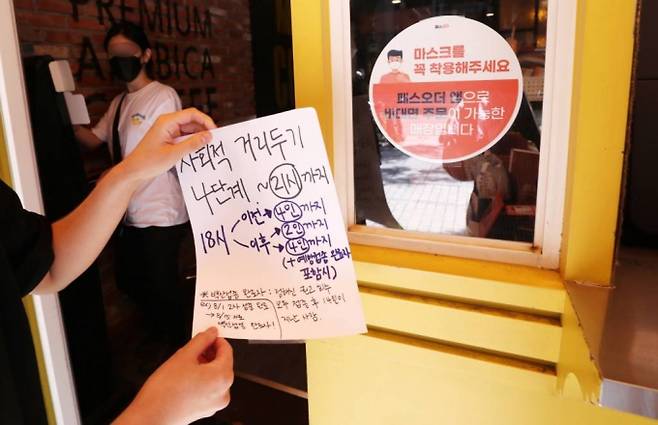 PREMIUM
ARABICA
COFFEE
마스크를
꼭 착용해주세요
패스오더 앱으로
비대면 주문이 가능한
매장입니다
사회적 거리두기
4단계 ~21시까지
18시
이전 → 4인까지
이후 → 2인까지
→ 4인까지
(+ 예방접종 완료자
포함시)
※ 백신접종 완료자 : 정해진 권고 회수
모두 접종 후 14일이
지난 사람.
ex) 8/1 2차 접종 완료
→ 8/15
백신접종 완료자!